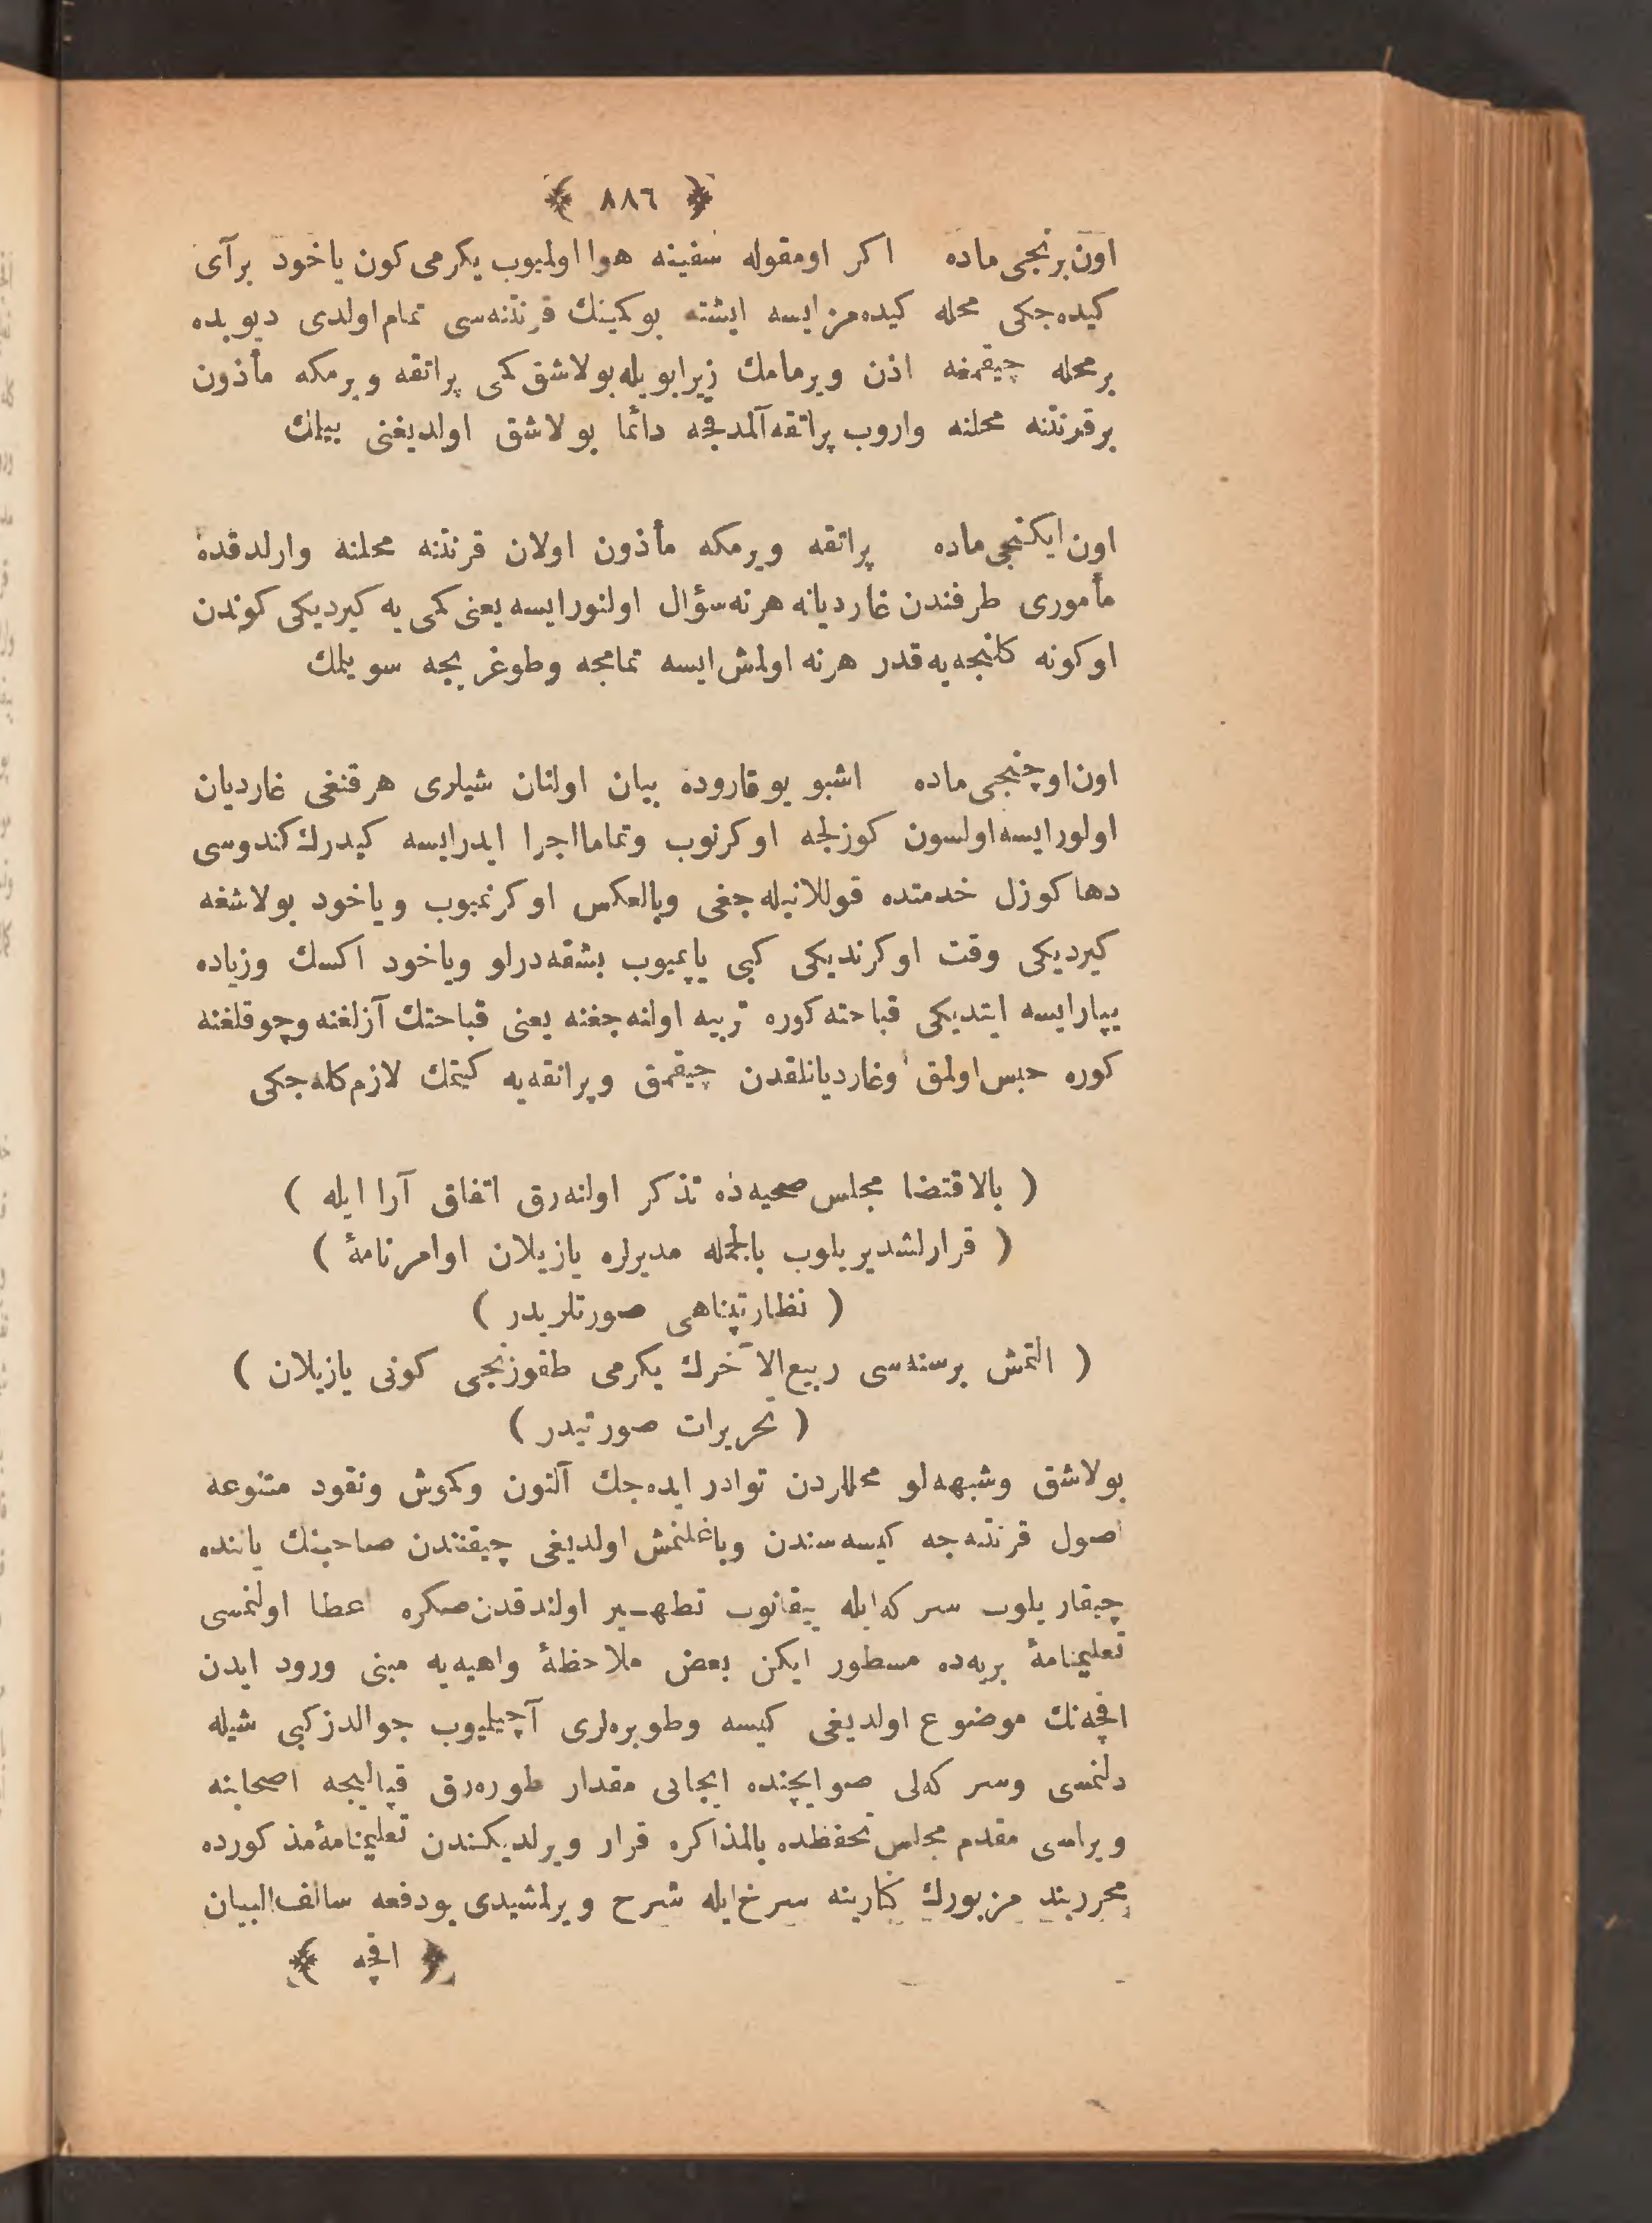 ﴿ ٨٨٦ ﴾
اون برنجی ماده اكر اومقوله سفینه هوا اولمیوب یكرمی كون یاخود برآی
كیده‌جكی محله كیده‌مز ایسه ایشته بوكمینك قرنتنه‌سی تمام اولدی دیوبده
برمحله چیقمغه اذن ویرمامك زیرا بویله بولاشق كمی پراتقه ویرمكه مأذون
برقرنتنه محلنه واروب پراتقه آلمدقجه دائما بولاشق اولدیغنی بیلمك
اون ایكنجی ماده پراتقه ویرمكه مأذون اولان قرنتنه محلنه وارلدقده
مأموری طرفندن غاردیانه هرنه سؤال اولنور ایسه یعنی كمی یه كیردیكی كوندن
اوكونه كلنجه‌یه قدر هرنه اولمش ایسه تمامجه وطوغریجه سویلمك
اون اوچنجی ماده اشبو یوقاروده بیان اولنان شیلری هرقنغی غاردیان
اولور ایسه اولسون كوزلجه اوكرنوب وتماما اجرا ایدر ایسه كیدرك كندوسی
دها كوزل خدمتده قوللانیله‌جغی وبالعكس اوكرنمیوب ویاخود بولاشغه
كیردیكی وقت اوكرندیكی كبی یاپمیوب بشقه درلو ویاخود اكسك وزیاده
یپار ایسه ایتدیكی قباحته كوره تربیه اولنه‌جغنه یعنی قباحتك آزلغنه وچوقلغنه
كوره حبس اولمق وغاردیانلقدن چیقمق وپرانقه‌یه كیتمك لازم كله‌جكی
( بالاقتضا مجلس صحیه‌ده تذكر اولنه‌رق اتفاق آرا ایله )
( قرارلشدیریلوب بالجمله مدیرلره یازیلان اوامرنامهٔ )
( نظارتپناهی صورتلریدر )
( التمش برسنه‌سی ربیع‌الآخرك یكرمی طقوزنجی كونی یازیلان )
( تحریرات صورتیدر )
بولاشق وشبهه‌لو محللردن توادر ایده‌جك آلتون وكموش ونقود متنوعه
اصول قرنتنه‌جه كیسه‌سندن وباغلنمش اولدیغی چیقنتدن صاحبنك یاننده
چیقاریلوب سركه ایله ییقانوب تطهیر اولندقدن صكره اعطا اولنمسی
تعلیمنامهٔ بریه‌ده مسطور ایكن بعض ملاحظهٔ واهیه‌یه مبنی ورود ایدن
اقچه‌نك موضوع اولدیغی كیسه وطوبره‌لری آچیلمیوب جوالدز كبی شیله
دلنمسی وسركه‌لی صو ایچنده ایجابی مقدار طوره‌رق قپالیجه اصحابنه
ویرلمسی مقدم مجلس تحفظده بالمذاكره قرار ویرلدیكندن تعلیمنامهٔ مذكورده
محرر بند مزبورك كنارینه سرخ ایله شرح ویرلمشیدی بودفعه سالف‌البیان
﴿ اقچه ﴾